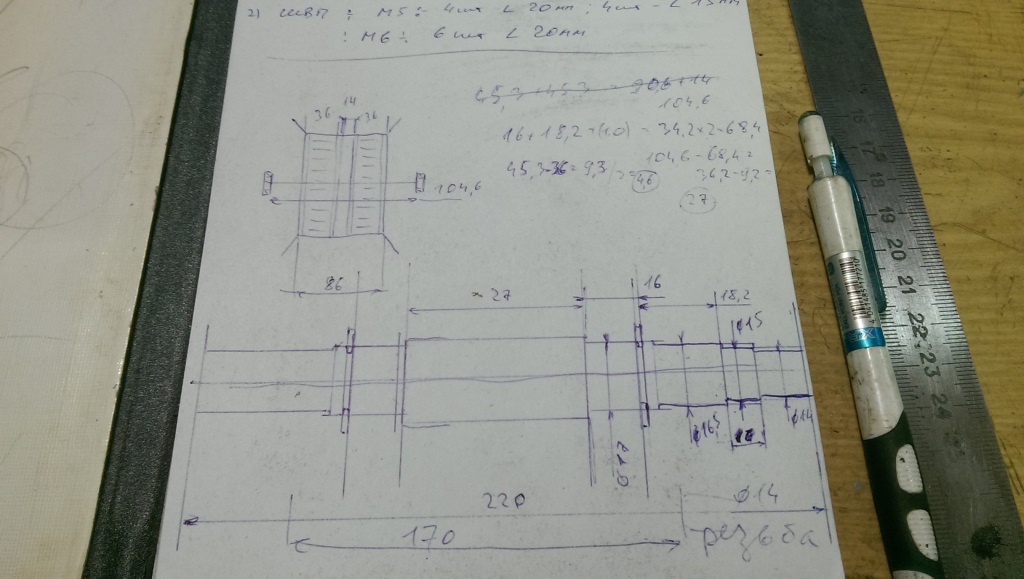 2) ШВП : М5 : 4шт L 20мм ; 4шт - L 15мм
: М6 : 6шт L 20мм
45,3+45,3 = 90,6+14
104,6
36 14 36
16+18,2 = 34,2×2=68,4
45,3-36=9,3
4,6
104,6-68,4=
36,2-9,2=
27
104,6
86
27
16
18,2
ø15
ø16,5
ø14
220
ø14
170
резьба
16
17
18
19
20
21
22
23
24